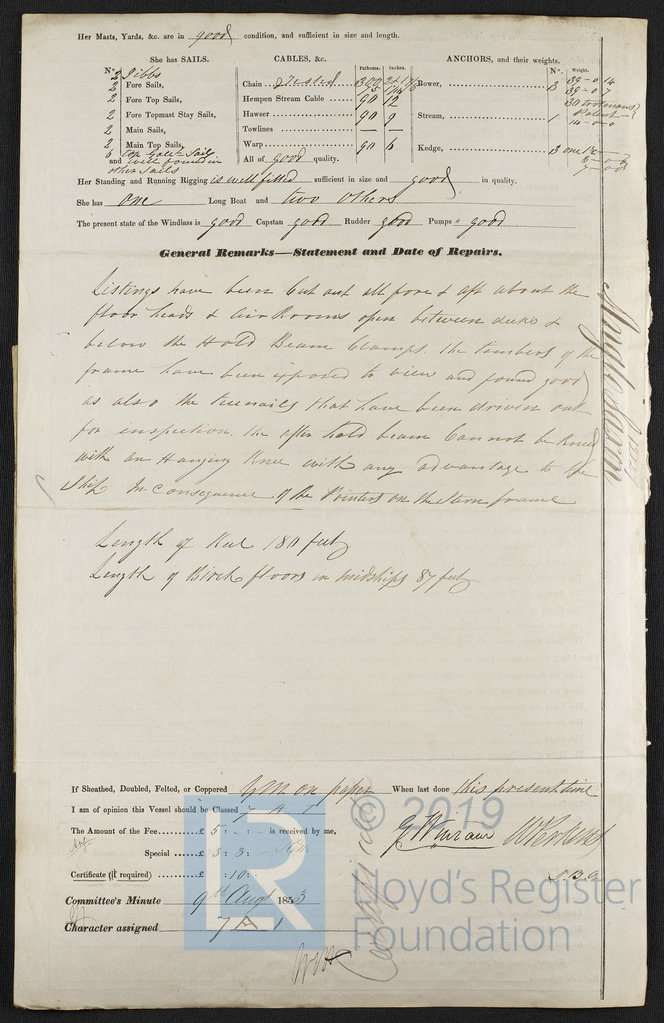 Her Masts, Yards, &c. are in good condition, and sufficient in size and length.
She has SAILS.
N°.
2 Jibbs
2 Fore Sails,
2 Fore Top Sails,
2 Fore Topmast Stay Sails,
2 Main Sails,
2 Main Top Sails,
6 Top Galt Sails
and well found in
other Sails
CABLES, &c.
Fathoms. Inches.
Chain - Tested 300
75
Hempen Stream Cable 90 12
Hawser 90 9
Towlines — —
Warp 90 6
All of good quality.
ANCHORS, and their weights.
N°. Weight.
Bower, 3 39-0-14
39-0-7
30
Stream, 1
14-0-0
Kedge, 3 one
7-0-0
Her Standing and Running Rigging is well fitted sufficient in size and good in quality.
She has one Long Boat and two others
The present state of the Windlass is good Capstan good Rudder good Pumps good
General Remarks—Statement and Date of Repairs.
Listings have been Cut out all fore & aft about the
floor heads & Air Rooms open between decks &
below the Hold Beam Clamps. The timbers of the
frame have been exposed to view and found good
as also the treenails that have been driven out
for inspection. The after hold beam Cannot be Kneed
with an Hanging Knee with any advantage to the
Ship In Consequence of the Pointers on the stern frame
Length of Keel 180 feet
Length of Birch floors in midships 87 feet
Anglo Saxon
If Sheathed, Doubled, Felted, or Coppered Y M on paper When last done this present time
I am of opinion this Vessel should be Classed 7 A 1
The Amount of the Fee £ 5 : - : - is received by me,
Special £ 3 : 3 : -
Certificate (if required) £ : 10 :
Committee's Minute 9th Augt 1853
Character assigned 7 A 1
© 2019
LR
Lloyd's Register
Foundation